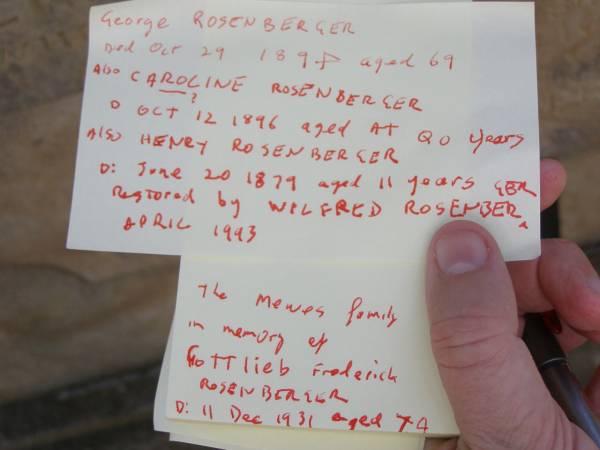 George ROSENBERGER
Died Oct 29 189 aged 69
Also CAROLINE ROSENBERGER
?
D OCT 12 1896 aged AT 20 years
Also HENRY ROSENBERGER
D: June 20 1879 aged 11 years
Restored by WILFRED ROSENBERGER
APRIL 1993
The Mewes family
in memory of
Gottlieb Frederick
ROSENBERGER
D: 11 Dec 1931 aged 74